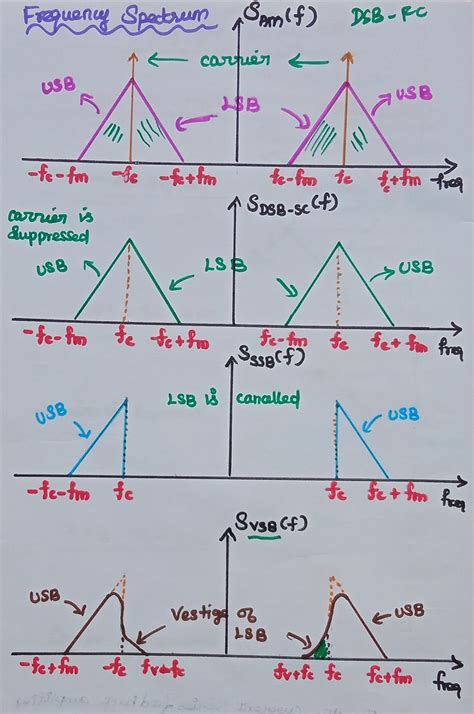 Frequency Spectrum
S_AM(f)
DSB-FC
← carrier ←
USB
LSB
USB
-fc-fm
-fc
-fc+fm
fc-fm
fc
fc+fm
freq
carrier is
suppressed
S_DSB-SC(f)
USB
LSB
USB
-fc-fm
fc
-fc+fm
fc-fm
fc
fc+fm
freq
S_SSB(f)
USB
LSB is cancelled
USB
-fc-fm
fc
fc
fc+fm
freq
S_VSB(f)
USB
Vestige of
LSB
USB
-fc+fm
-fc
fv-fc
fv+fc
fc
fc+fm
freq